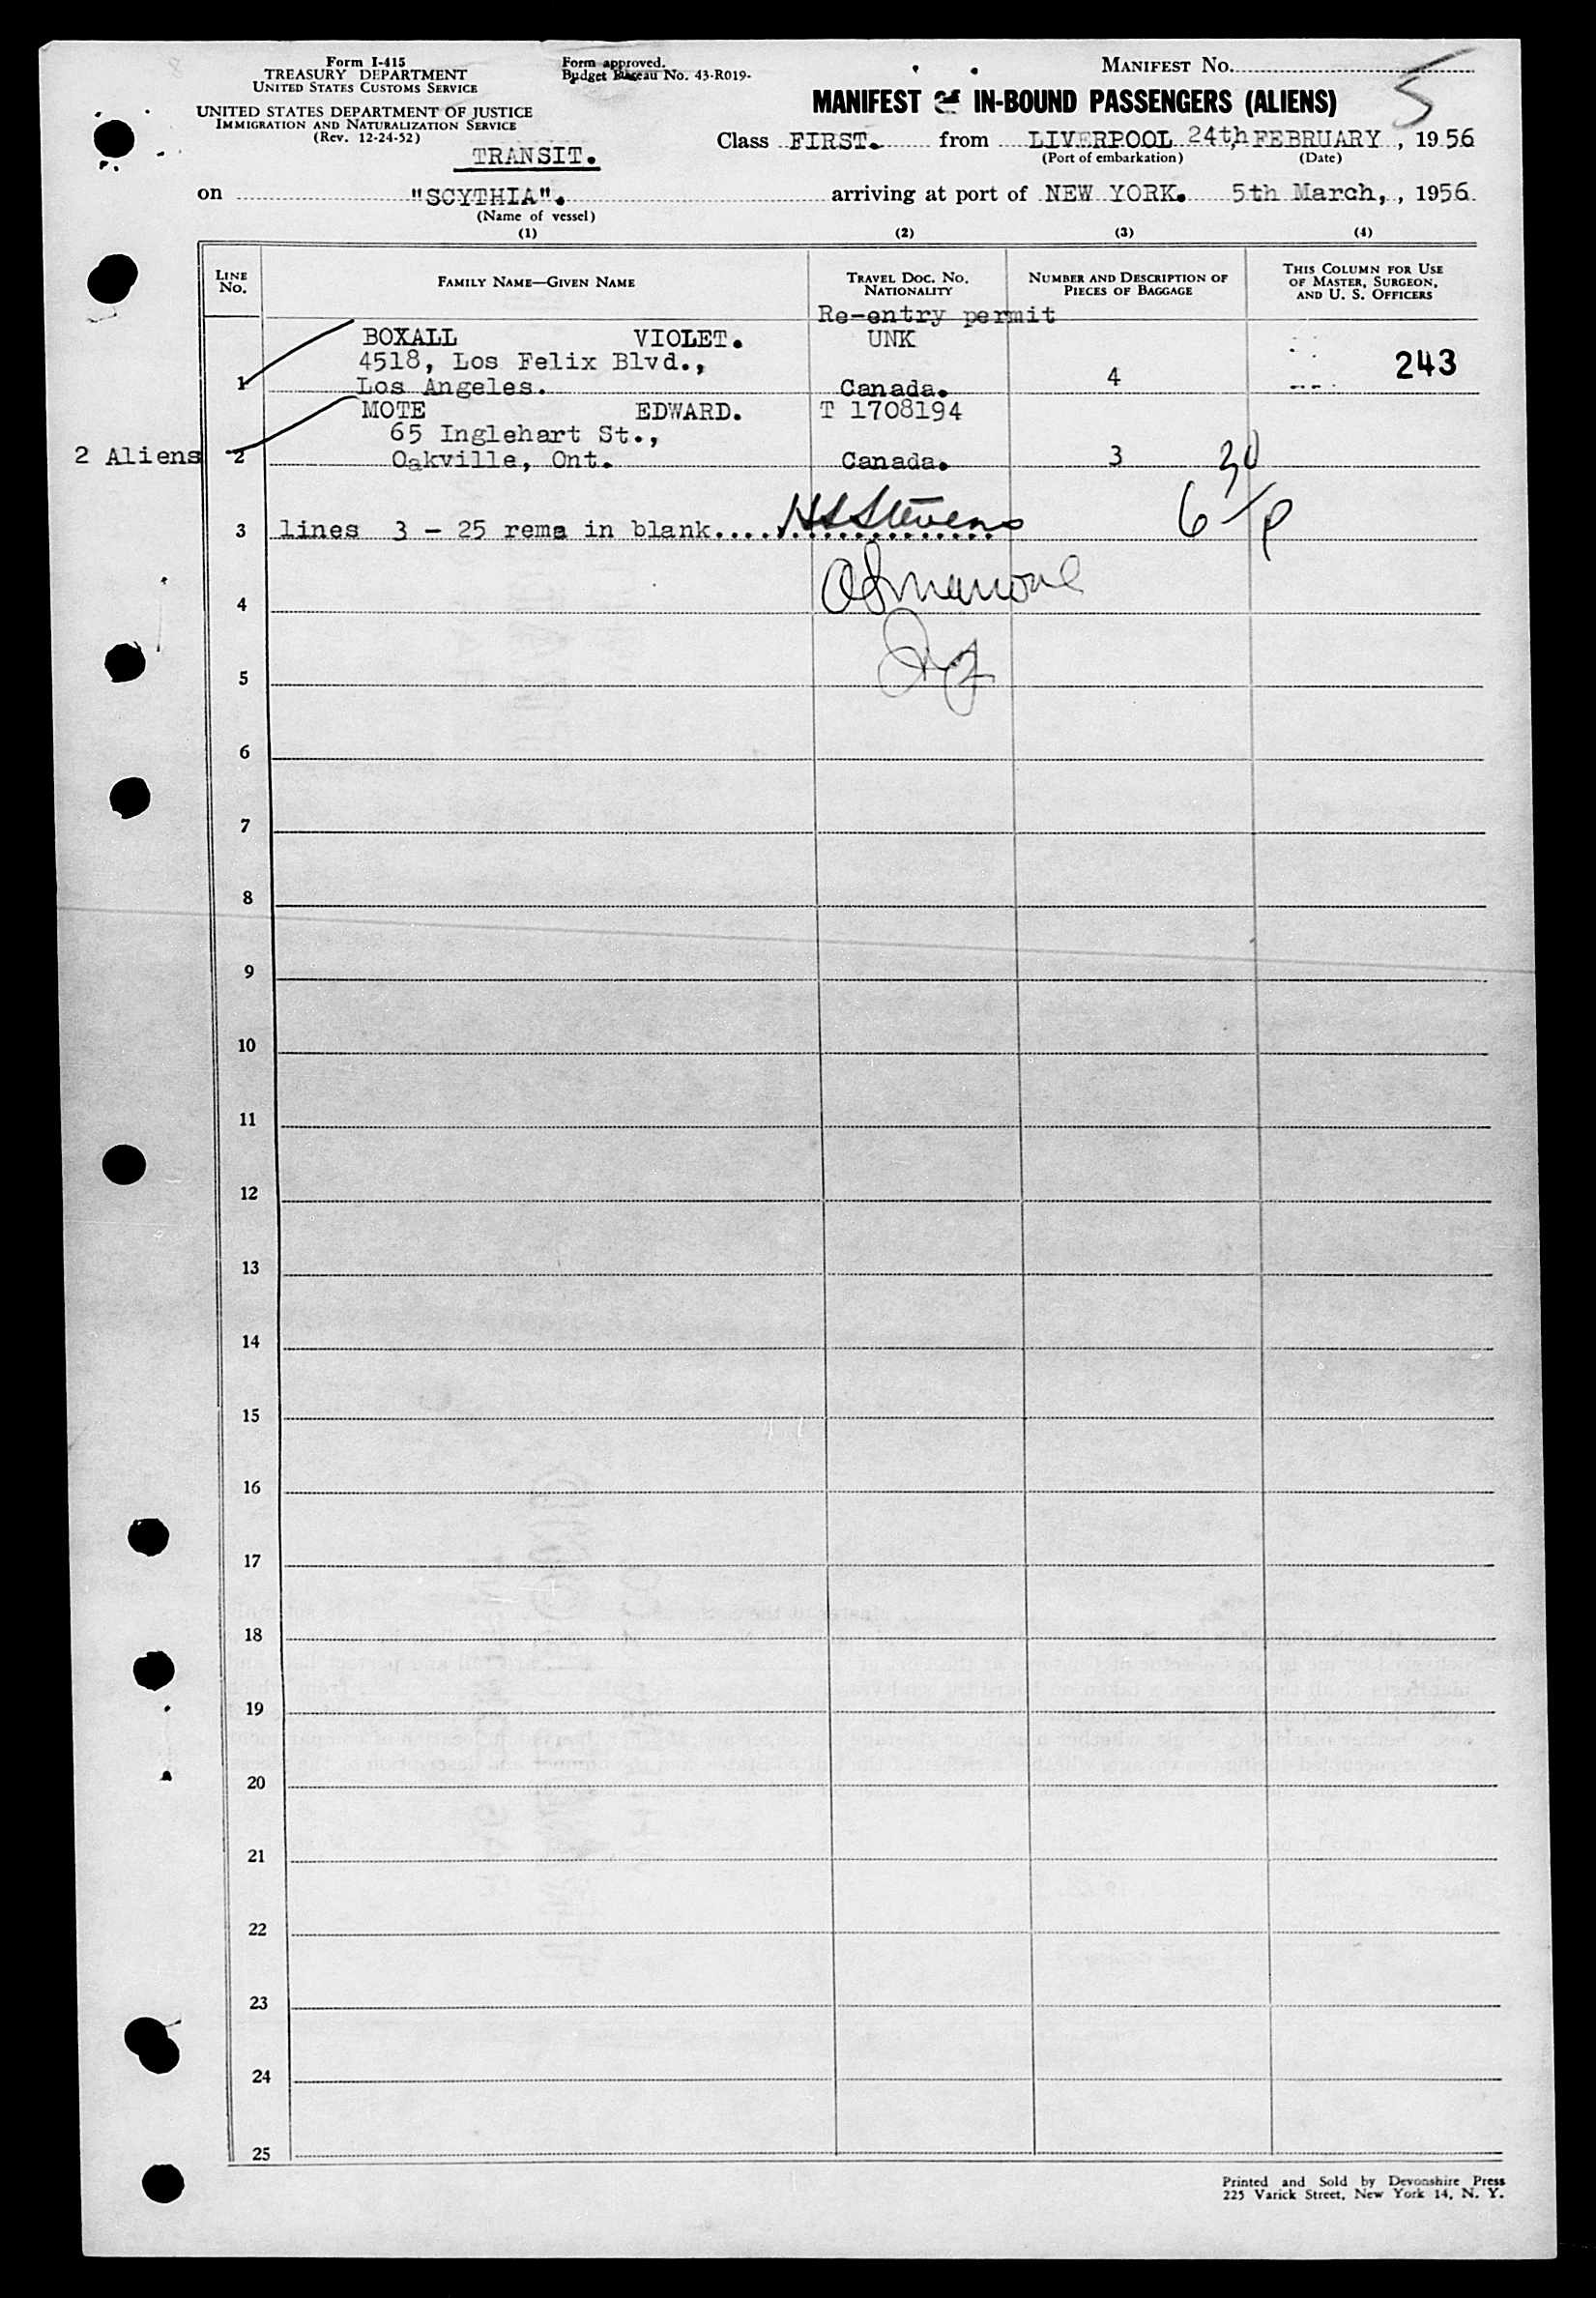 Form I-415
TREASURY DEPARTMENT
UNITED STATES CUSTOMS SERVICE
UNITED STATES DEPARTMENT OF JUSTICE
IMMIGRATION AND NATURALIZATION SERVICE
(Rev. 12-24-52)
TRANSIT.
Form approved.
Budget Bureau No. 43-R019-
MANIFEST NO.
5
MANIFEST OF IN-BOUND PASSENGERS (ALIENS)
Class FIRST. from LIVERPOOL 24th FEBRUARY, 1956
(Port of embarkation) (Date)
on "SCYTHIA". arriving at port of NEW YORK. 5th March, , 1956
(Name of vessel)
(1) (2) (3) (4)
LINE NO.
FAMILY NAME—GIVEN NAME
TRAVEL DOC. NO. NATIONALITY
NUMBER AND DESCRIPTION OF PIECES OF BAGGAGE
THIS COLUMN FOR USE OF MASTER, SURGEON, AND U. S. OFFICERS
Re-entry permit
BOXALL VIOLET. UNK
4518, Los Felix Blvd., 243
1 Los Angeles. Canada. 4
MOTE EDWARD. T 1708194
65 Inglehart St.,
2 Aliens 2 Oakville, Ont. Canada. 3
30
6 /P
3 lines 3 - 25 remain blank.... HS Stevens
4
5
6
7
8
9
10
11
12
13
14
15
16
17
18
19
20
21
22
23
24
25
Printed and Sold by Devonshire Press
225 Varick Street, New York 14, N. Y.